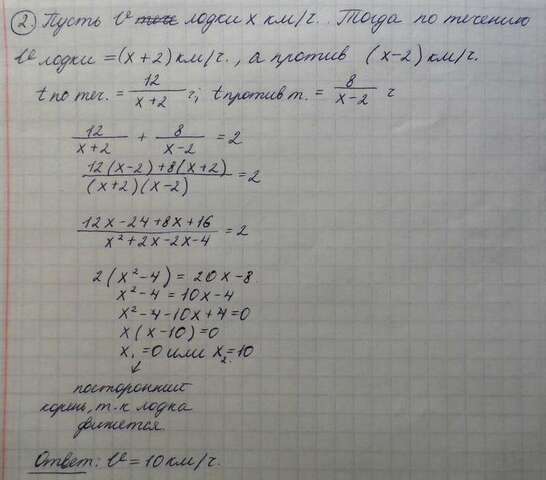 2. Пусть V лодки x км/ч. Тогда по течению
V лодки = (x+2) км/ч, а против (x-2) км/ч.
t по теч. = 12/(x+2) ч; t против т. = 8/(x-2) ч
12/(x+2) + 8/(x-2) = 2
(12(x-2)+8(x+2))/((x+2)(x-2)) = 2
(12x-24+8x+16)/(x²+2x-2x-4) = 2
2(x²-4) = 20x-8
x²-4 = 10x-4
x²-4-10x+4=0
x(x-10)=0
x₁=0 или x₂=10
↙
посторонний
корень, т.к лодка
движется.
Ответ: V=10км/ч.